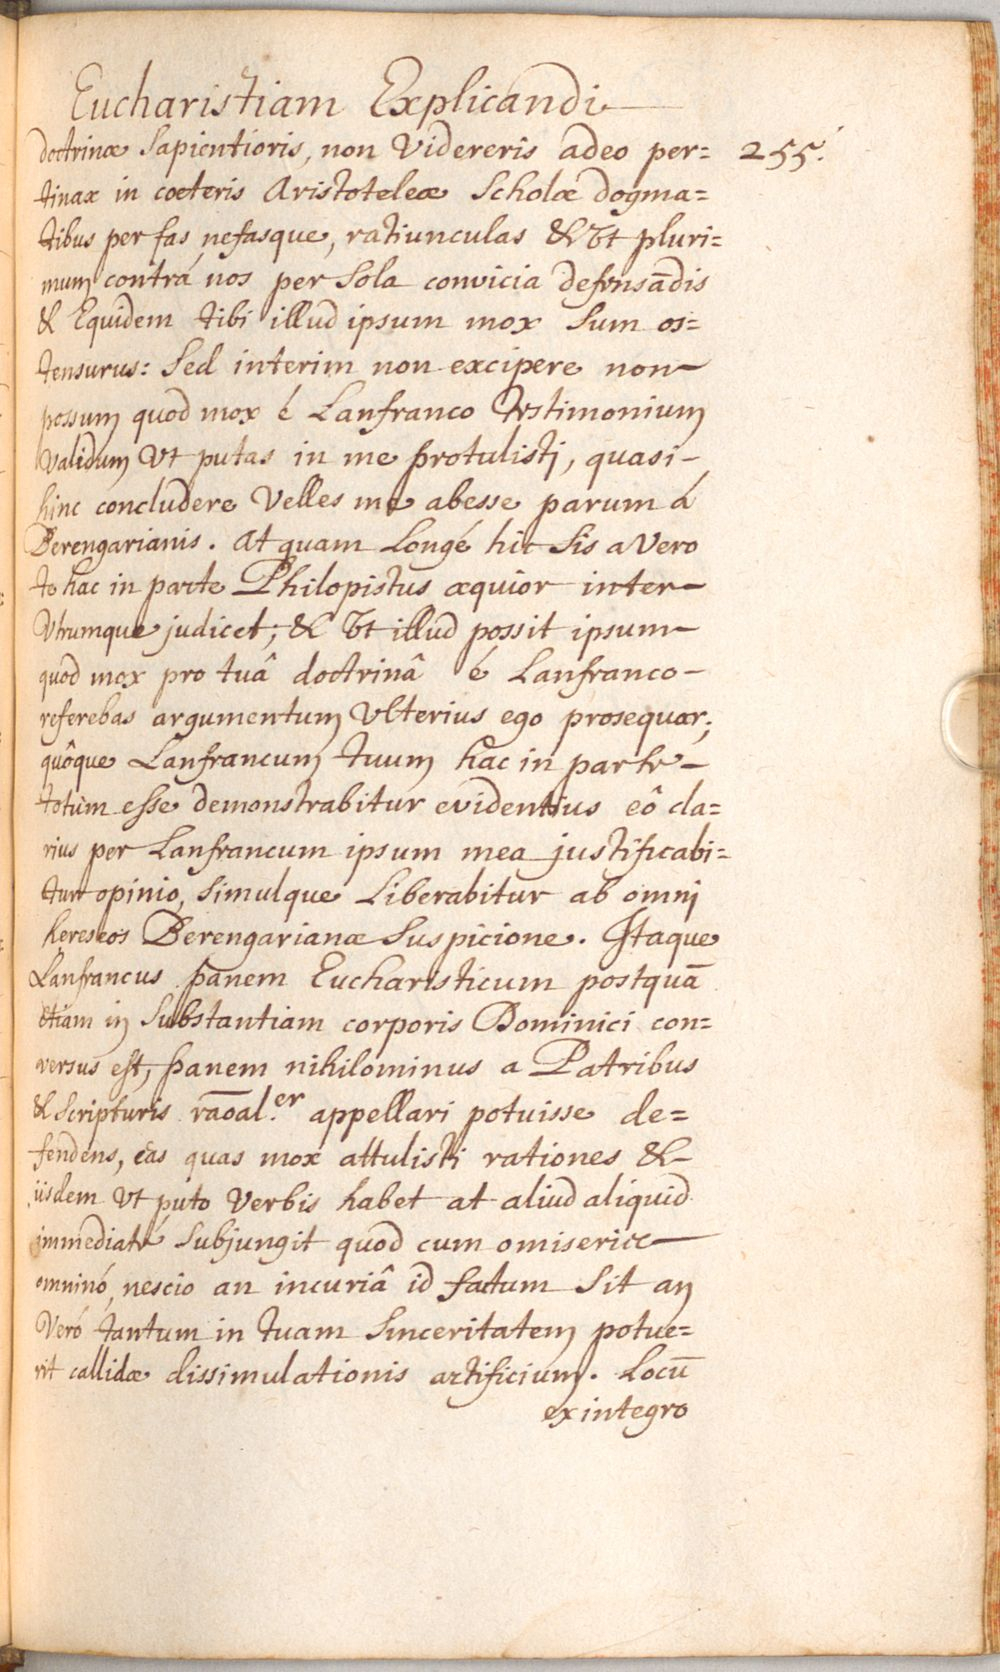 Eucharistiam Explicandi
doctrinæ Sapientioris, non Videreris adeo per=
255.
tinax in cœteris Aristoteleæ Scholæ dogma=
tibus per fas, nefasque, ratiunculas & Ut pluri=
mum contrá nos per Sola convicia defensādis
& Equidem tibi illud ipsum mox Sum os=
tensurus: Sed interim non excipere non
possum quod mox é Lanfranco testimonium
Validum Ut putas in me protulisti, quasi
hinc concludere Velles me abesse parum á
Berengarianis. At quam Longé hic Sis a Vero
te hac in parte Philopistus æquior inter
Utrumque judicet; & Ut illud possit ipsum
quod mox pro tuâ doctrinâ é Lanfranco
referebas argumentum Ulterius ego prosequar;
quôque Lanfrancum tuum hac in parte
totum esse demonstrabitur evidentius eô cla=
rius per Lanfrancum ipsum mea justificabi=
tur opinio, Simulque Liberabitur ab omni
hereseos Berengarianæ Suspicione. Itaque
Lanfrancus panem Eucharisticum postquā
etiam in Substantiam corporis Dominici con=
versus est, panem nihilominus a Patribus
& Scripturis rāoal.er appellari potuisse de=
fendens, eas quas mox attulisti rationes &
iisdem Ut puto Verbis habet at aliud aliquid
immediaté Subjungit quod cum omiseris
omninó, nescio an incuriâ id fatum Sit an
Veró tantum in tuam Sinceritatem potue=
rit callidæ dissimulationis artificium. Locū
ex integro